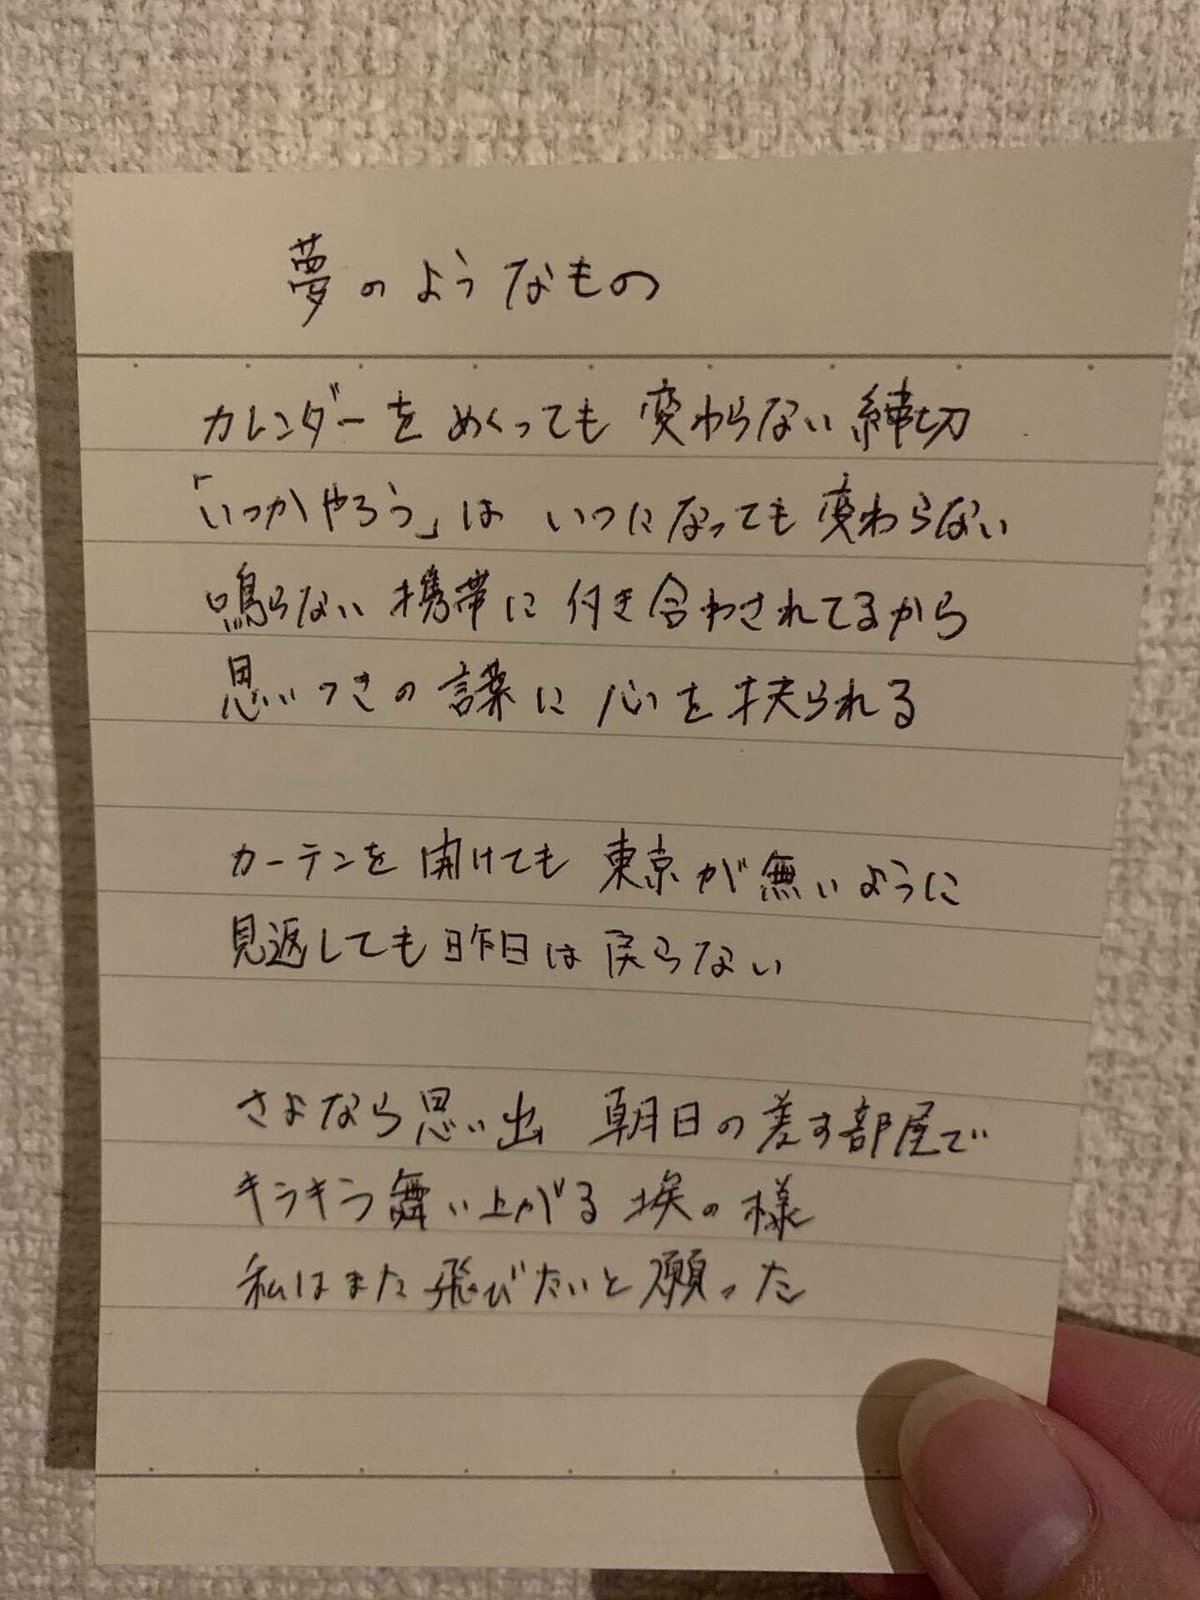 夢のようなもの
カレンダーをめくっても変わらない締切
「いつかやろう」は いつになっても変わらない
鳴らない携帯に付き合わされてるから
思いつきの謀に心を抉られる
カーテンを開けても東京が無いように
見返しても昨日は戻らない
さよなら思い出 朝日の差す部屋で
キラキラ舞い上がる埃の様
私はまた飛びたいと願った